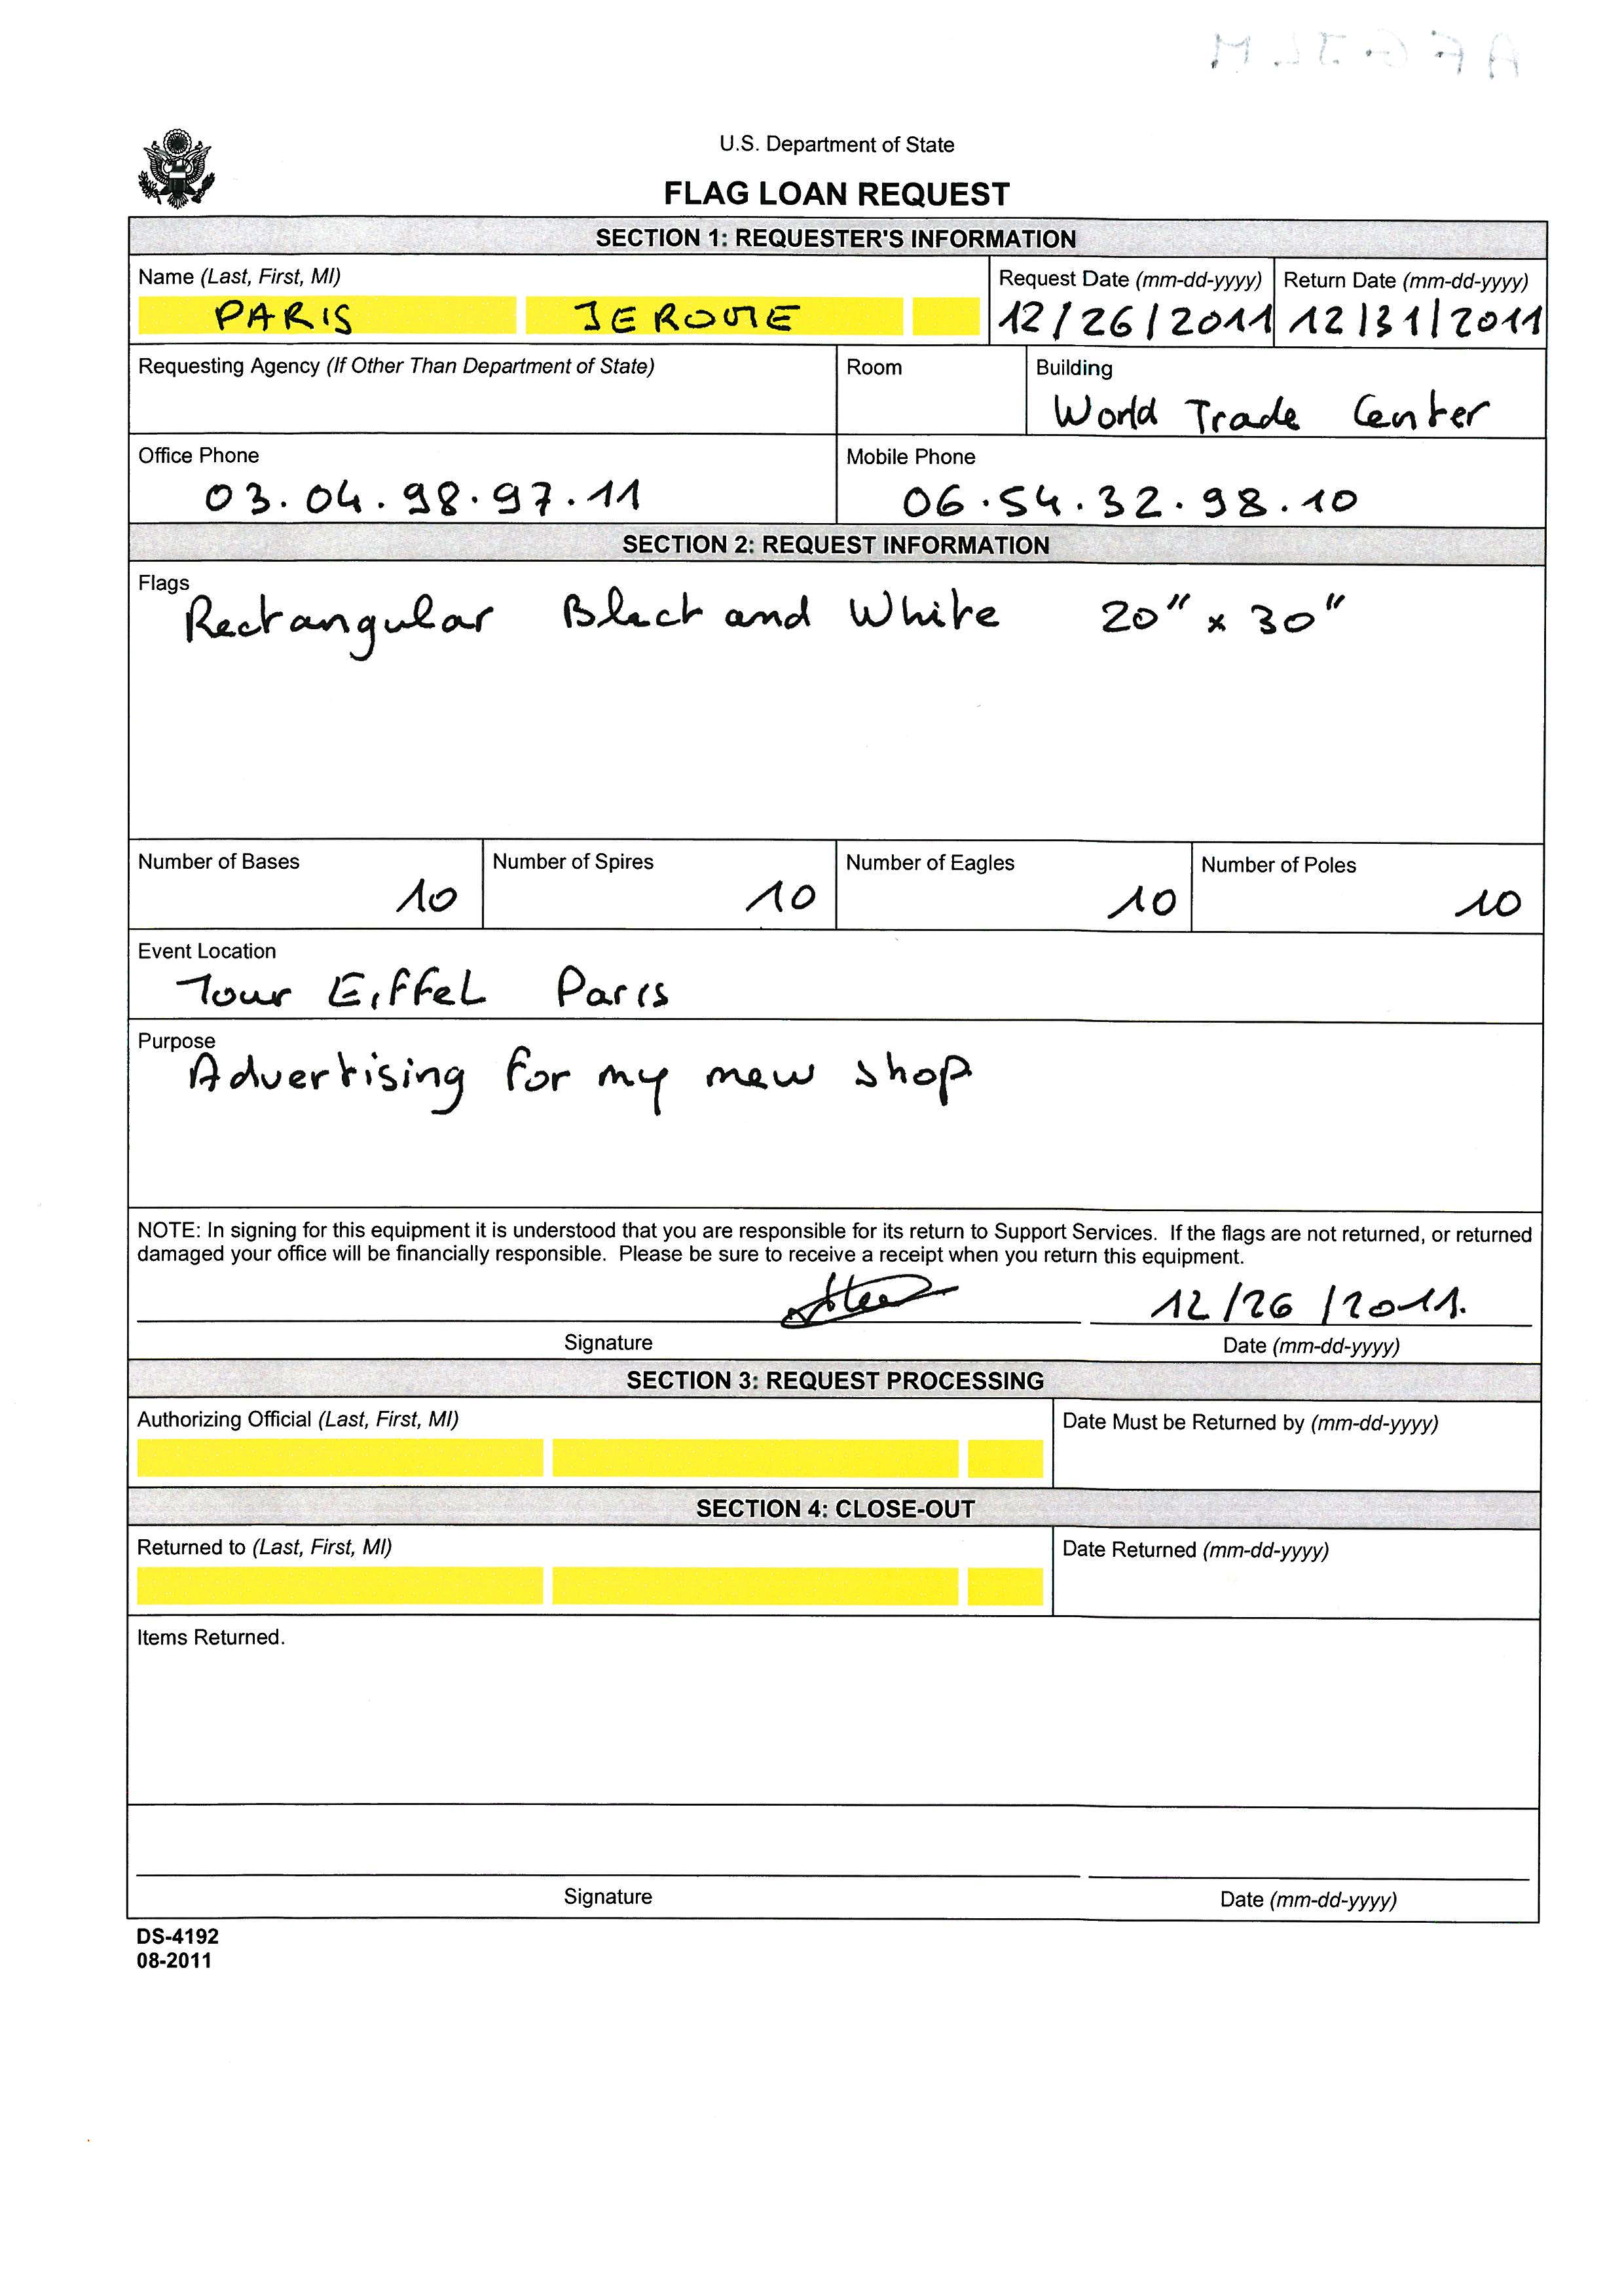 U.S. Department of State
FLAG LOAN REQUEST
SECTION 1: REQUESTER'S INFORMATION
Name (Last, First, MI)
Request Date (mm-dd-yyyy)
Return Date (mm-dd-yyyy)
PARIS JEROME
12/26/2011
12/31/2011
Requesting Agency (If Other Than Department of State)
Room
Building
World Trade Center
Office Phone
Mobile Phone
03.04.98.97.11
06.54.32.98.10
SECTION 2: REQUEST INFORMATION
Flags
Rectangular Black and White 20" x 30"
Number of Bases
Number of Spires
Number of Eagles
Number of Poles
10
10
10
10
Event Location
Tour Eiffel Paris
Purpose
Advertising for my new shop
NOTE: In signing for this equipment it is understood that you are responsible for its return to Support Services. If the flags are not returned, or returned
damaged your office will be financially responsible. Please be sure to receive a receipt when you return this equipment.
12/26/2011.
Signature
Date (mm-dd-yyyy)
SECTION 3: REQUEST PROCESSING
Authorizing Official (Last, First, MI)
Date Must be Returned by (mm-dd-yyyy)
SECTION 4: CLOSE-OUT
Returned to (Last, First, MI)
Date Returned (mm-dd-yyyy)
Items Returned.
Signature
Date (mm-dd-yyyy)
DS-4192
08-2011